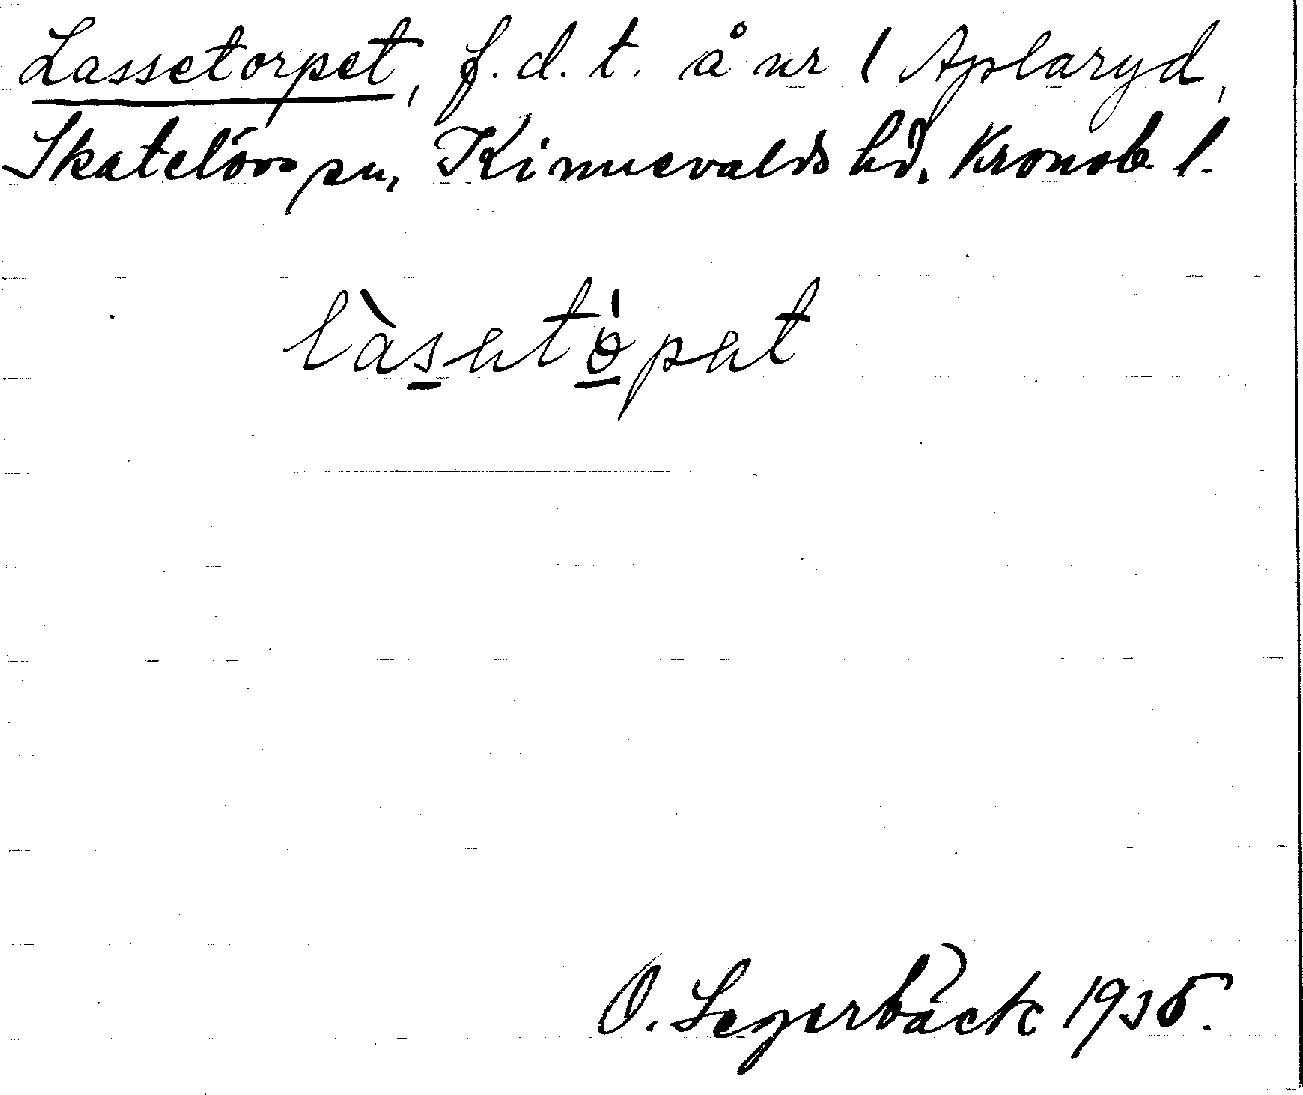 Lassetorpet, f.d.t. å nr 1 Aplaryd,
Skatelövs sn, Kinnevalds hd. Kronob l.
làsatö́pat
O. Segerbäck 1935.